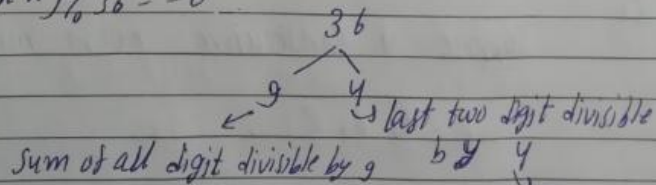 36
9 4
last two digit divisible
by 4
Sum of all digit divisible by 9